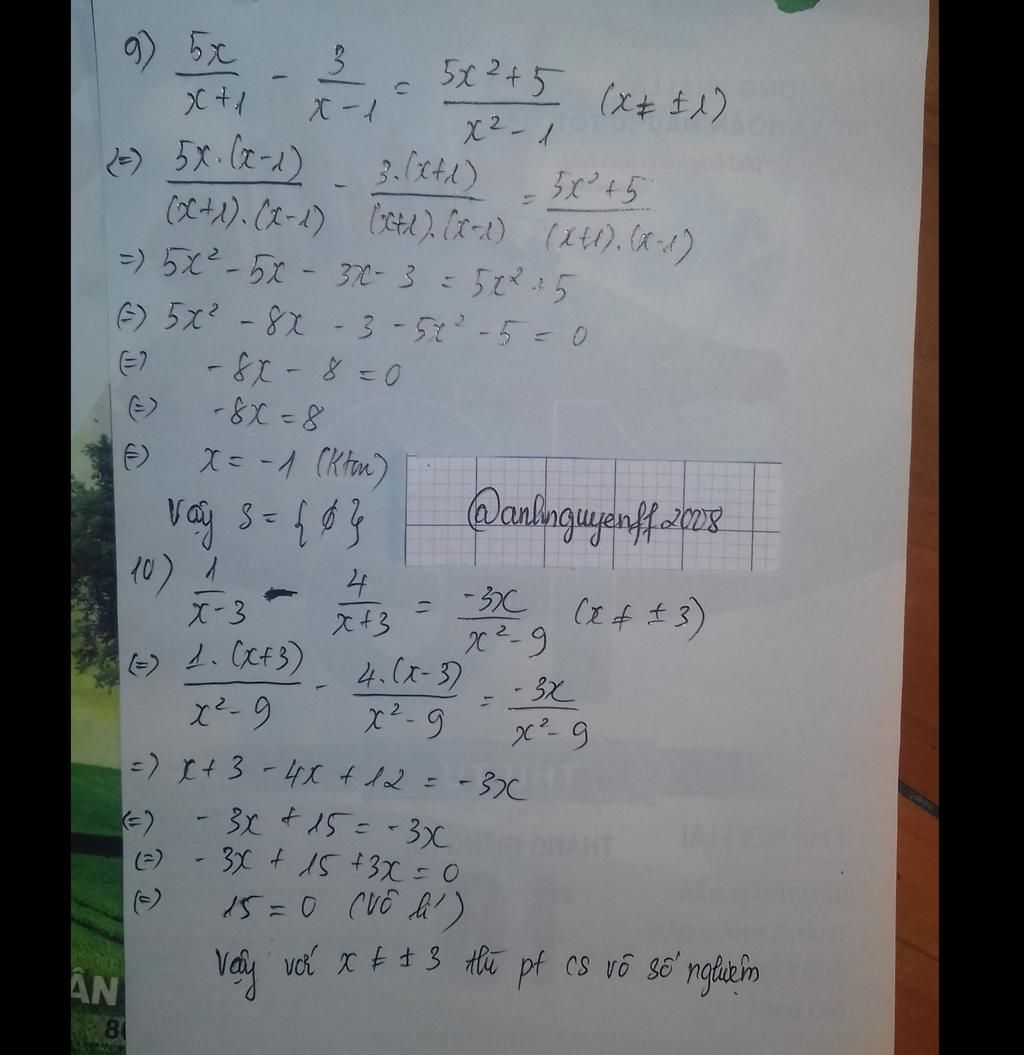 9) 5x/(x+1) - 3/(x-1) = (5x²+5)/(x²-1) (x ≠ ±1)
(=) 5x.(x-1)/(x+1).(x-1) - 3.(x+1)/(x+1).(x-1) = 5x²+5/(x+1).(x-1)
=) 5x² - 5x - 3x - 3 = 5x² + 5
(=) 5x² - 8x - 3 - 5x² - 5 = 0
(=) -8x - 8 = 0
(=) -8x = 8
(=) x = -1 (Ktm)
Vậy S = { ∅ }
@anhnguyenff2008
10) 1/(x-3) - 4/(x+3) = -3x/(x²-9) (x ≠ ±3)
(=) 1.(x+3)/(x²-9) - 4.(x-3)/(x²-9) = -3x/(x²-9)
=) x+3 - 4x + 12 = -3x
(=) -3x + 15 = -3x
(=) -3x + 15 + 3x = 0
(=) 15 = 0 (vô lí)
Vậy với x ≠ ±3 thì pt cs vô số nghiệm
THÁNG GIÊNG
THÁNG HAI
ÂN